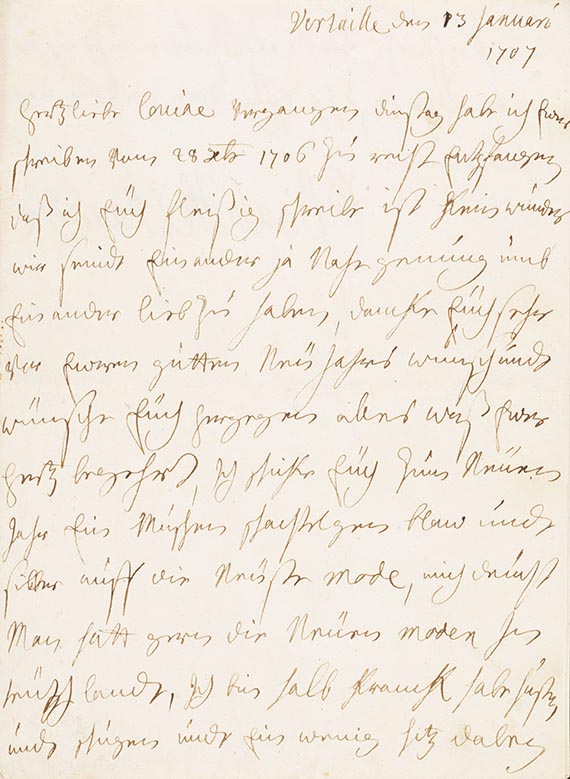 Versaille den 13 Januari
1707
hertzliebe Louise vergangen dinstag habe ich Ewer
schreiben vom 28 xbr 1706 zu recht entpfangen
daß ich Eüch fleißig schreibe ist Kein wunder
wir seindt Einander ja Nahe genung umb
Einander lieb zu haben, dancke Eüch sehr
vor Ewern gutten Neü Jahrs wunsch undt
wünsche Eüch hergegen alles waß Ewer
hertz begehrt, ich schicke Eüch zum Neüen
Jahr Ein schachtelgen blaw undt
silber auff die Neüste mode, mich deücht
Man hatt gern die Neüen moden in
teütschlandt, ich bin halb Kranck habe husten
undt schnupen undt Ein wenig hitz dabey